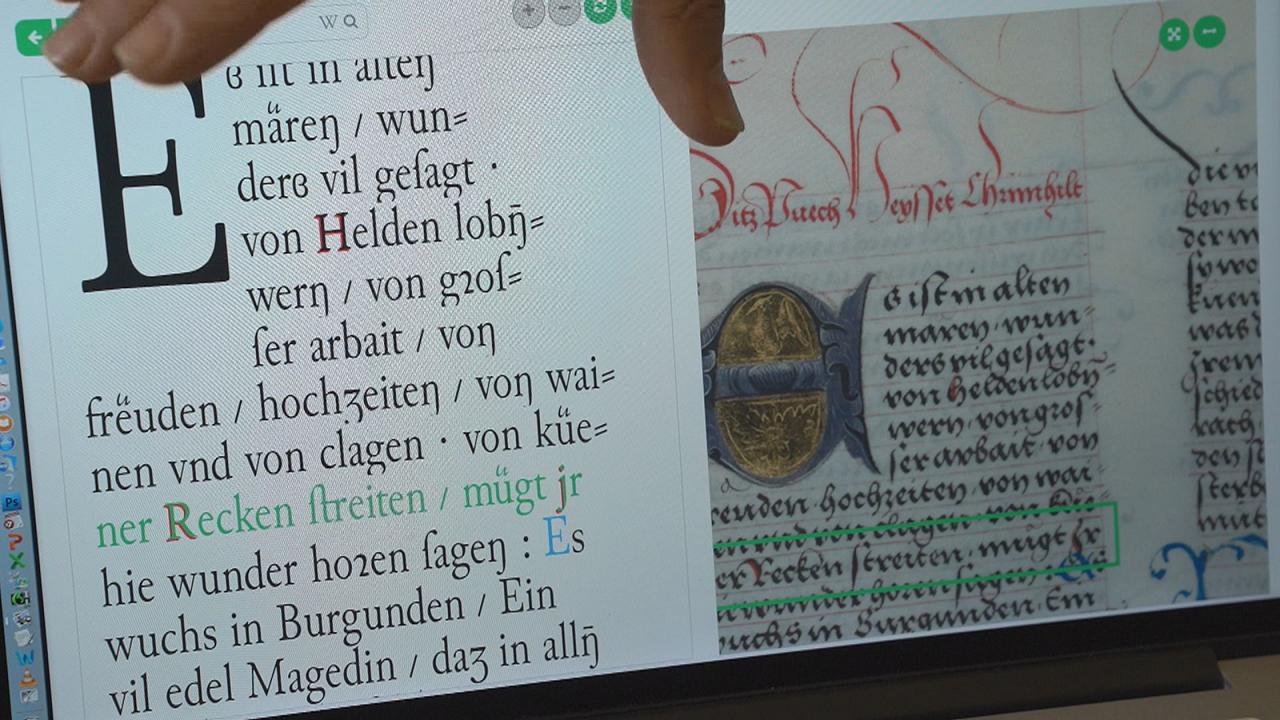 W
E
ɞ iſt in alteŋ
maͤreŋ / wun⸗
derɞ vil geſagt ·
von Helden lobŋ̄⸗
werŋ / von gꝛoſ⸗
ſer arbait / voŋ
freͤuden / hochʒeiteŋ / voŋ wai⸗
nen vnd von clagen · von kuͤe⸗
ner Recken ſtreiten / muͤgt jr
hie wunder hoꝛen ſageŋ : Es
wuchs in Burgunden / Ein
vil edel Magedin / daʒ in allŋ̄
Ditz Puech Heyſſet Chrimhilt
Es iſt in alten
maren / wun⸗
ders vil geſagt·
von Helden lobn̄⸗
wern / von groſ⸗
ſer arbait / von
reuden / hochzeiten / von wai⸗
nen vnd von clagen · von küe⸗
er Recken ſtreiten / mügt Jr
wunder horen ſagen : Es
uchs in Burgunden / Ein